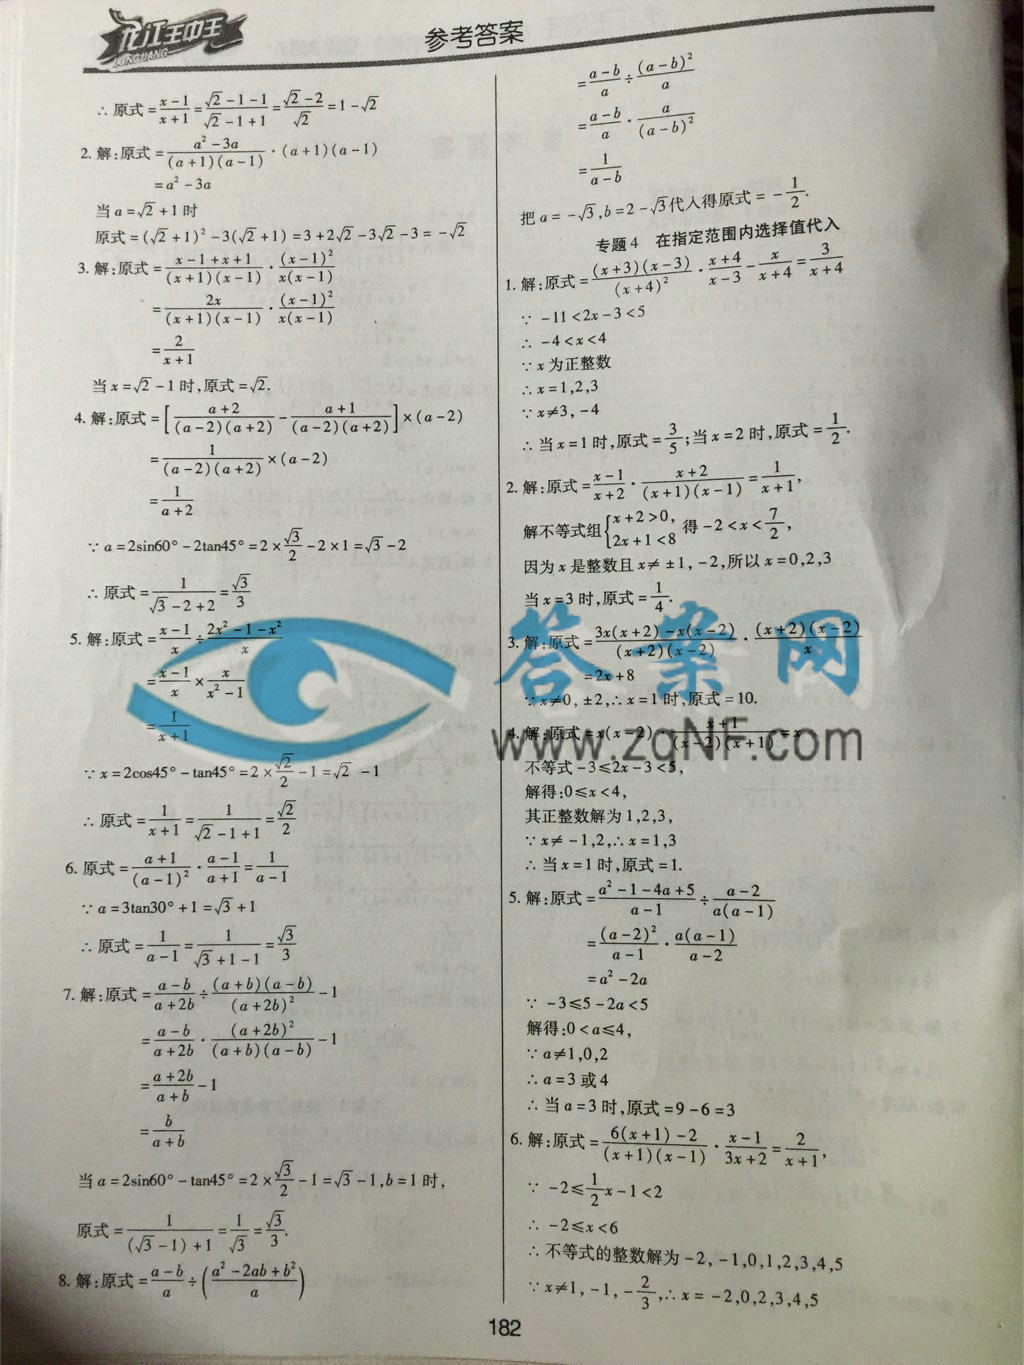 龙江王中王
LONGJIANG
参考答案
∴ 原式 = (x-1)/(x+1) = (√2-1-1)/(√2-1+1) = (√2-2)/√2 = 1-√2
2. 解:原式 = (a²-3a)/((a+1)(a-1)) · (a+1)(a-1)
= a²-3a
当 a=√2+1 时
原式 = (√2+1)²-3(√2+1) = 3+2√2-3√2-3 = -√2
3. 解:原式 = (x-1+x+1)/((x+1)(x-1)) · (x-1)²/(x(x-1))
= 2x/((x+1)(x-1)) · (x-1)²/(x(x-1))
= 2/(x+1)
当 x=√2-1 时,原式=√2.
4. 解:原式 = [(a+2)/((a-2)(a+2)) - (a+1)/((a-2)(a+2))] × (a-2)
= 1/((a-2)(a+2)) × (a-2)
= 1/(a+2)
∵ a=2sin60°-2tan45°=2×√3/2-2×1=√3-2
∴ 原式 = 1/(√3-2+2) = √3/3
5. 解:原式 = (x-1)/x ÷ (2x²-1-x²)/x
= (x-1)/x × x/(x²-1)
= 1/(x+1)
∵ x=2cos45°-tan45°=2×√2/2-1=√2-1
∴ 原式 = 1/(x+1) = 1/(√2-1+1) = √2/2
6. 原式 = (a+1)/(a-1)² · (a-1)/(a+1) = 1/(a-1)
∵ a=3tan30°+1=√3+1
∴ 原式 = 1/(a-1) = 1/(√3+1-1) = √3/3
7. 解:原式 = (a-b)/(a+2b) ÷ (a+b)(a-b)/(a+2b)² - 1
= (a-b)/(a+2b) · (a+2b)²/((a+b)(a-b)) - 1
= (a+2b)/(a+b) - 1
= b/(a+b)
当 a=2sin60°-tan45°=2×√3/2-1=√3-1,b=1 时,
原式 = 1/((√3-1)+1) = 1/√3 = √3/3.
8. 解:原式 = (a-b)/a ÷ ((a²-2ab+b²)/a)
= (a-b)/a ÷ (a-b)²/a
= (a-b)/a · a/(a-b)²
= 1/(a-b)
把 a=-√3,b=2-√3代入得原式=-1/2.
专题4 在指定范围内选择值代入
1. 解:原式 = (x+3)(x-3)/(x+4)² · (x+4)/(x-3) - x/(x+4) = 3/(x+4)
∵ -11<2x-3<5
∴ -4<x<4
∵ x 为正整数
∴ x=1,2,3
∵ x≠3,-4
∴ 当 x=1 时,原式=3/5;当 x=2 时,原式=1/2.
2. 解:原式 = (x-1)/(x+2) · (x+2)/((x+1)(x-1)) = 1/(x+1),
解不等式组{x+2>0, 2x+1<8 得 -2<x<7/2,
因为 x 是整数且 x≠±1,-2,所以 x=0,2,3
当 x=3 时,原式=1/4.
3. 解:原式 = (3x(x+2)-x(x-2))/((x+2)(x-2)) · (x+2)(x-2)/x
=2x+8
∵ x≠0,±2,∴ x=1 时,原式=10.
4. 解:原式=x(x-2) · (x+1)/((x-2)(x+1)) = x
不等式 -3≤2x-3<5,
解得:0≤x<4,
其正整数解为 1,2,3,
∵ x≠-1,2,∴ x=1,3
∴ 当 x=1 时,原式=1.
5. 解:原式 = (a²-1-4a+5)/(a-1) ÷ (a-2)/(a(a-1))
= (a-2)²/(a-1) · a(a-1)/(a-2)
= a²-2a
∵ -3≤5-2a<5
解得:0<a≤4,
∵ a≠1,0,2
∴ a=3 或 4
∴ 当 a=3 时,原式=9-6=3
6. 解:原式 = (6(x+1)-2)/((x+1)(x-1)) · (x-1)/(3x+2) = 2/(x+1),
∵ -2≤1/2x-1<2
∴ -2≤x<6
∴ 不等式的整数解为 -2,-1,0,1,2,3,4,5
∵ x≠1,-1,-2/3,∴ x=-2,0,2,3,4,5
182
答案网
www.zqNF.com